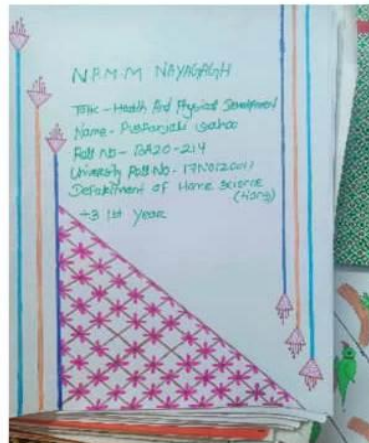 N.P.M.M NAYAGAGH
Topic - Health And Physical Development
Name - Pusparjali sahoo
Roll No - BA20-214
University Roll No - 17N0120011
Department of Home Science
(Hons)
+3 1st Year